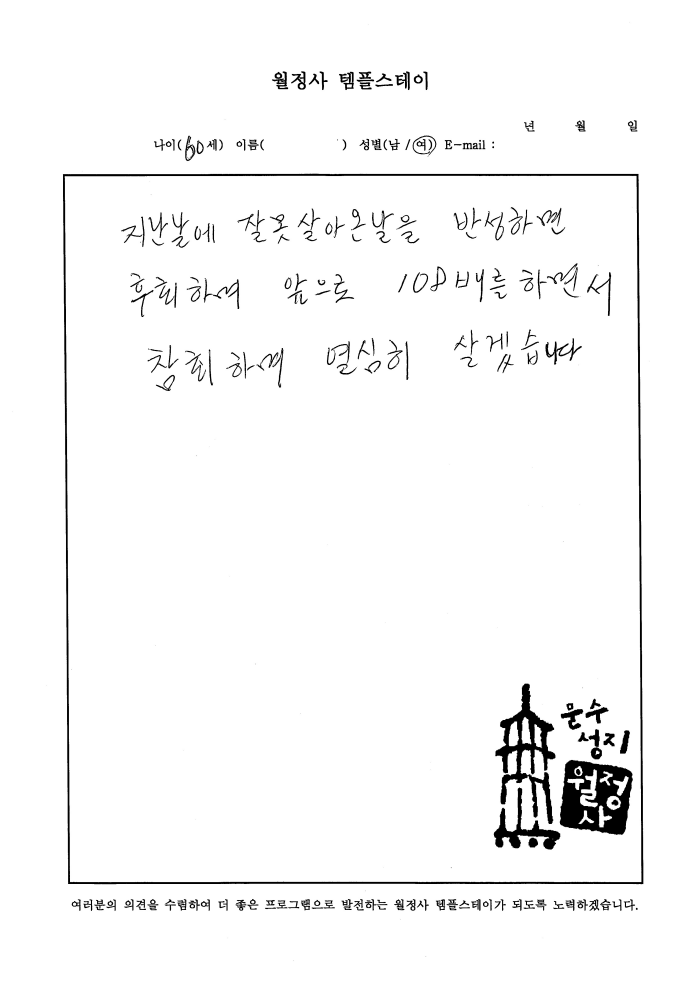 월정사 템플스테이
년 월 일
나이(60세) 이름( ) 성별(남 / 여) E-mail :
지난날에 잘못살아온날을 반성하면
후회하며 앞으로 108배를 하면서
참회하며 열심히 살겠습니다
문수
성지
월정
사
여러분의 의견을 수렴하여 더 좋은 프로그램으로 발전하는 월정사 템플스테이가 되도록 노력하겠습니다.